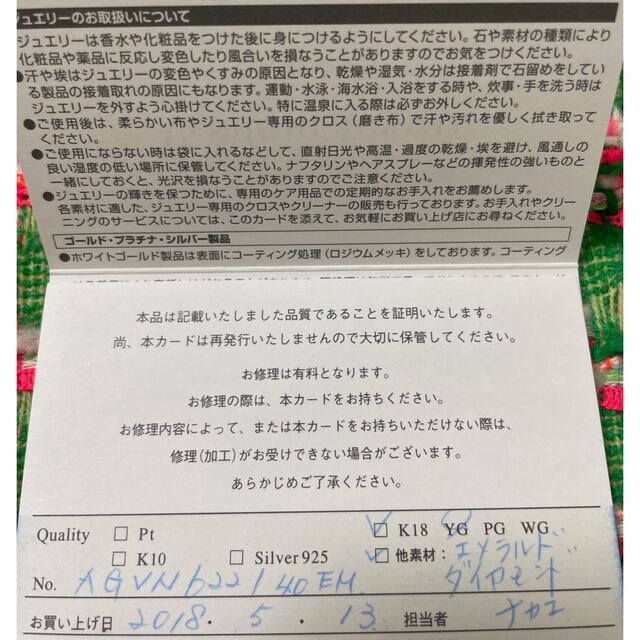 ジュエリーのお取扱いについて
ジュエリーは香水や化粧品をつけた後に身につけるようにしてください。石や素材の種類により
化粧品や薬品に反応し変色したり風合いを損なうことがありますのでお気をつけください。
●汗や埃はジュエリーの変色やくすみの原因となり、乾燥や湿気・水分は接着剤で石留めをしてい
る製品の接着取れの原因にもなります。運動・水泳・海水浴・入浴をする時や、炊事・手を洗う時は
ジュエリーを外すよう心掛けてください。特に温泉に入る際は必ずお外しください。
●ご使用後は、柔らかい布やジュエリー専用のクロス（磨き布）で汗や汚れを優しく拭き取って
ください。
●ご使用にならない時は袋に入れるなどして、直射日光や高温・過度の乾燥・埃を避け、風通しの
良い湿度の低い場所に保管してください。ナフタリンやヘアスプレーなどの揮発性の強いものと
一緒にしておくと、光沢を損なうことがありますのでご注意ください。
●ジュエリーの輝きを保つために、専用のケア用品での定期的なお手入れをお薦めします。
各素材に適した、ジュエリー専用のクロスやクリーナーの販売も行っております。お手入れやクリー
ニングのサービスについては、このカードを添えて、お気軽にお買い上げ店にお尋ねください。
ゴールド・プラチナ・シルバー製品
●ホワイトゴールド製品は表面にコーティング処理（ロジウムメッキ）をしております。コーティング
本品は記載いたしました品質であることを証明いたします。
尚、本カードは再発行いたしませんので大切に保管してください。
お修理は有料となります。
お修理の際は、本カードをお持ちください。
お修理内容によって、または本カードをお持ちいただけない際は、
修理（加工）がお受けできない場合がございます。
あらかじめご了承ください。
Quality □ Pt ☑ K18 YG PG WG
□ K10 □ Silver925 ☑ 他素材：エメラルド
ダイヤモンド
No. AGVN622140EM
お買い上げ日 2018・5・13 担当者 ナカエ